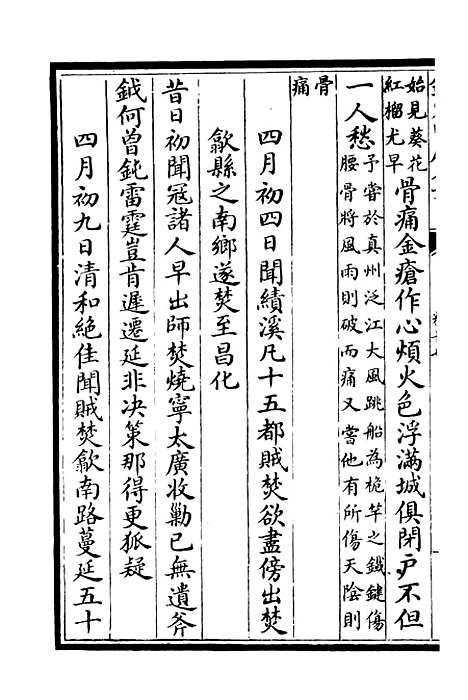 始見葵花
紅榴尤早
骨痛金瘡作心煩火色浮滿城俱閉戶不但
一人愁
予嘗於真州泛江大風跳船為桅竿之鐵鍵傷
腰骨將風雨則破而痛又嘗他有所傷天陰則
骨
痛
四月初四日聞績溪凡十五都賊焚欲盡傍出焚
歙縣之南鄉遂焚至昌化
昔日初聞寇諸人早出師焚燒寧太廣收勦已無遺斧
鉞何曾鈍雷霆豈肯遲遷延非决策那得更狐疑
四月初九日清和絶佳聞賊焚歙南路蔓延五十